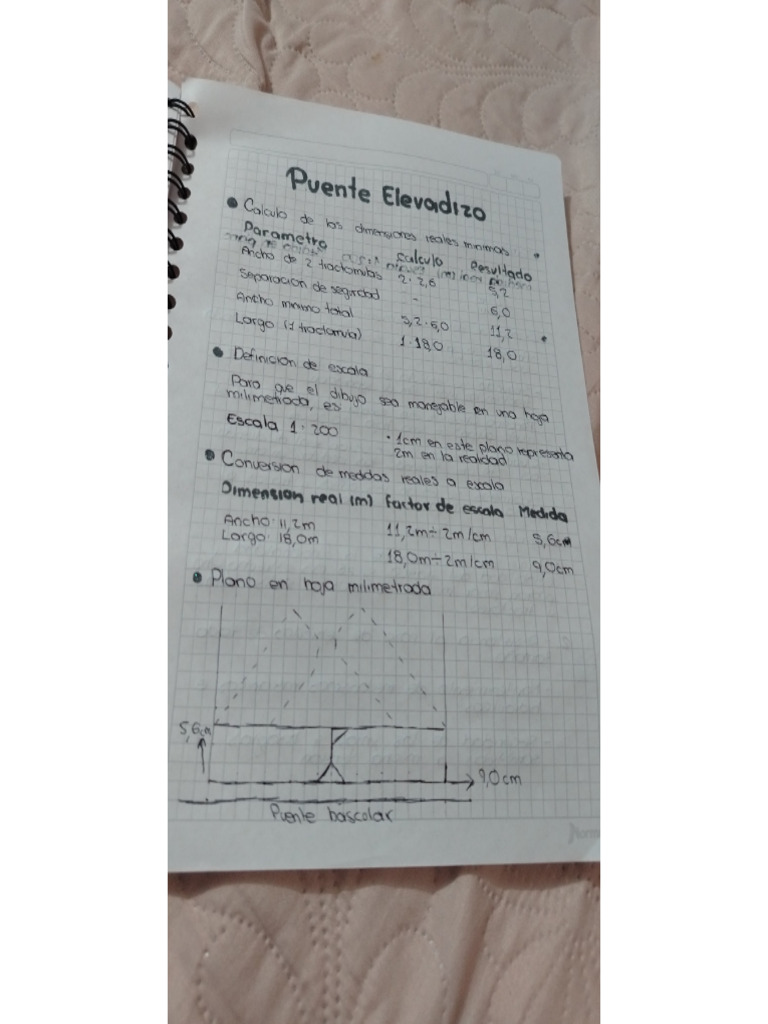 Puente Elevadizo
• Calculo de las dimensiones reales minimas
Parametro Calculo Resultado
Ancho de 2 tractomulas 2·2,6 5,2
Separacion de seguridad - 6,0
Ancho minimo total 5,2·6,0 11,2
Largo (1 tractomula) 1·18,0 18,0
• Definicion de escala
Para que el dibujo sea manejable en una hoja
milimetrada, es
Escala 1·200
• 1cm en este plano representa
2m en la realidad
• Conversion de medidas reales a escala
Dimension real (m) factor de escala Medida
Ancho: 11,2m 11,2m÷2m/cm 5,6cm
Largo: 18,0m 18,0m÷2m/cm 9,0cm
• Plano en hoja milimetrada
5,6cm
9,0cm
Puente bascolar
Norma